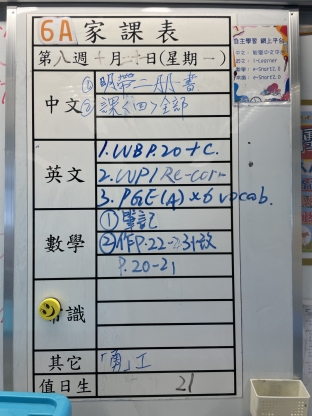 6A 家課表
第八週十月二十日(星期一)
中文
①明帶二冊書
②課<四>全部
英文
1. WB P.20 + C.
2. WP1 Re-corr
3. PGE(A) x6 vocab.
數學
①筆記
②作P.22-23改
P.20-21
常識
其它
「勇」工
值日生
21
自主學習 網上平台